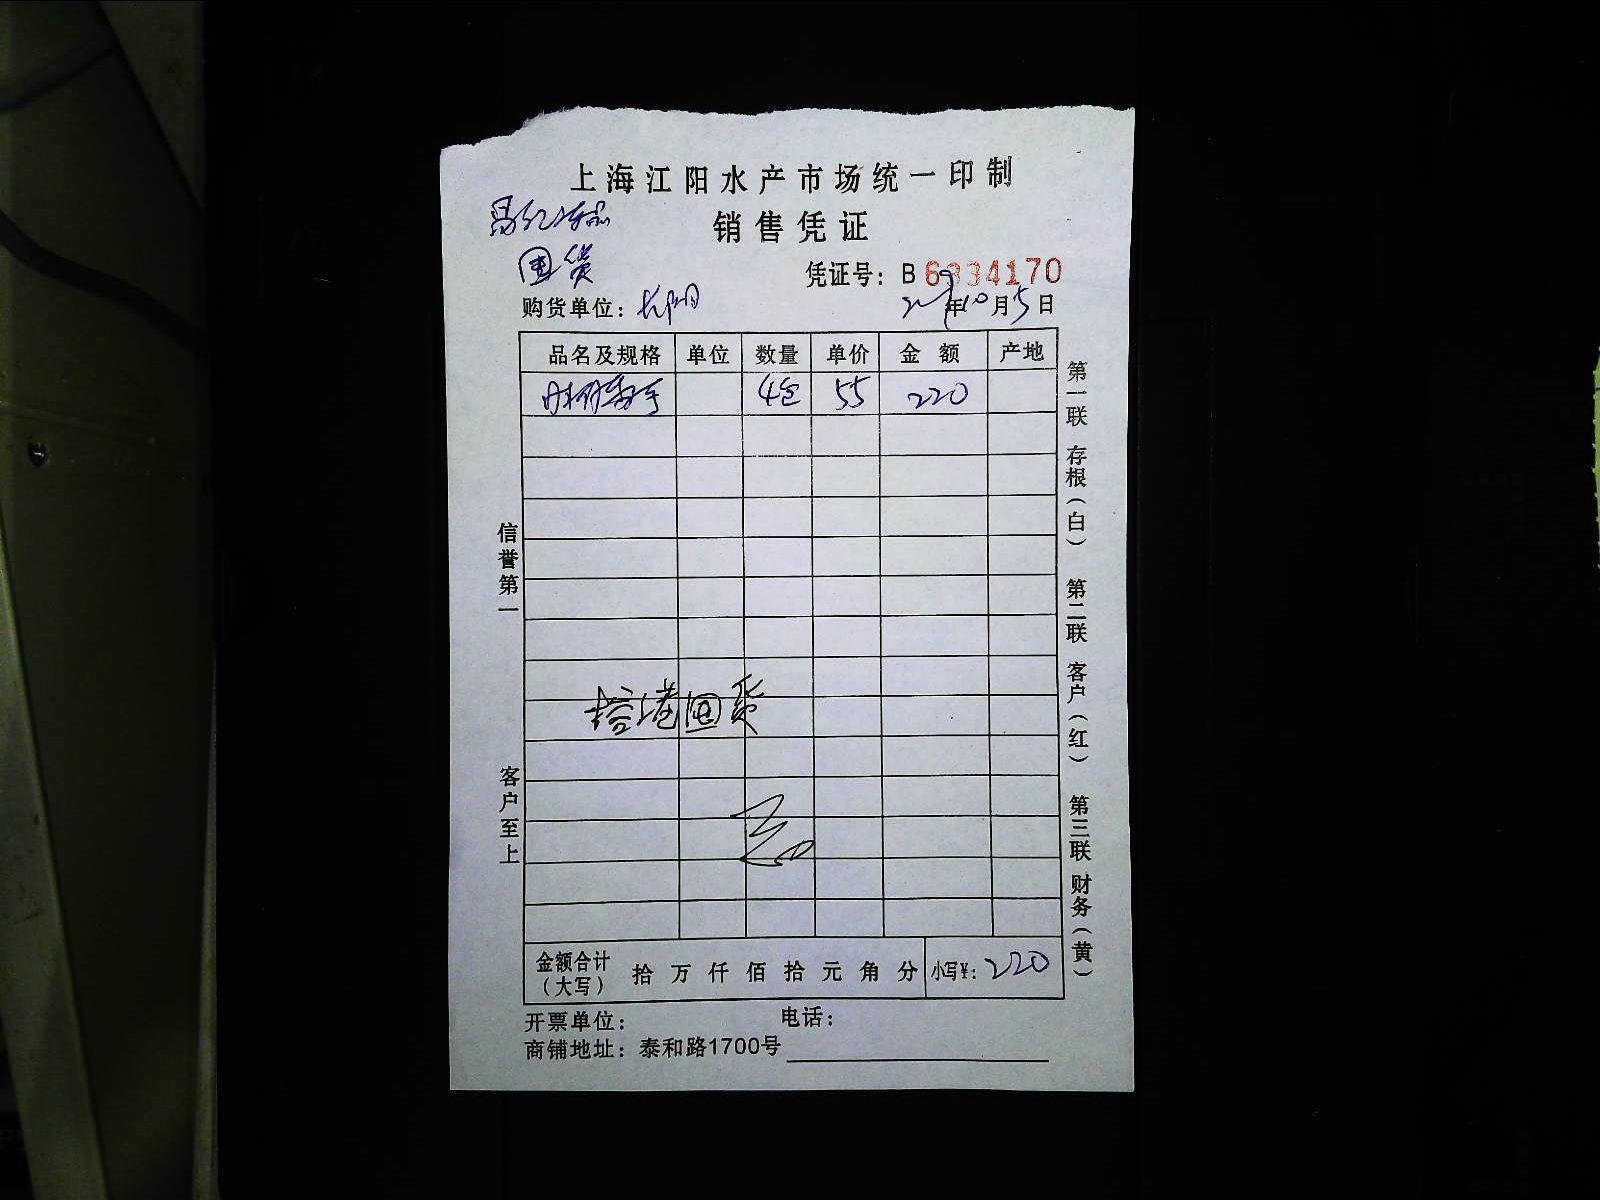 上海江阳水产市场统一印制
销售凭证
囤货
凭证号：B 6334170
购货单位：长阳
年10月5日
品名及规格 单位 数量 单价 金额 产地
4包 55 220
囤货
金额合计（大写） 拾 万 仟 佰 拾 元 角 分 小写¥：220
开票单位： 电话：
商铺地址：泰和路1700号
信誉第一
客户至上
第一联 存根（白） 第二联 客户（红） 第三联 财务（黄）